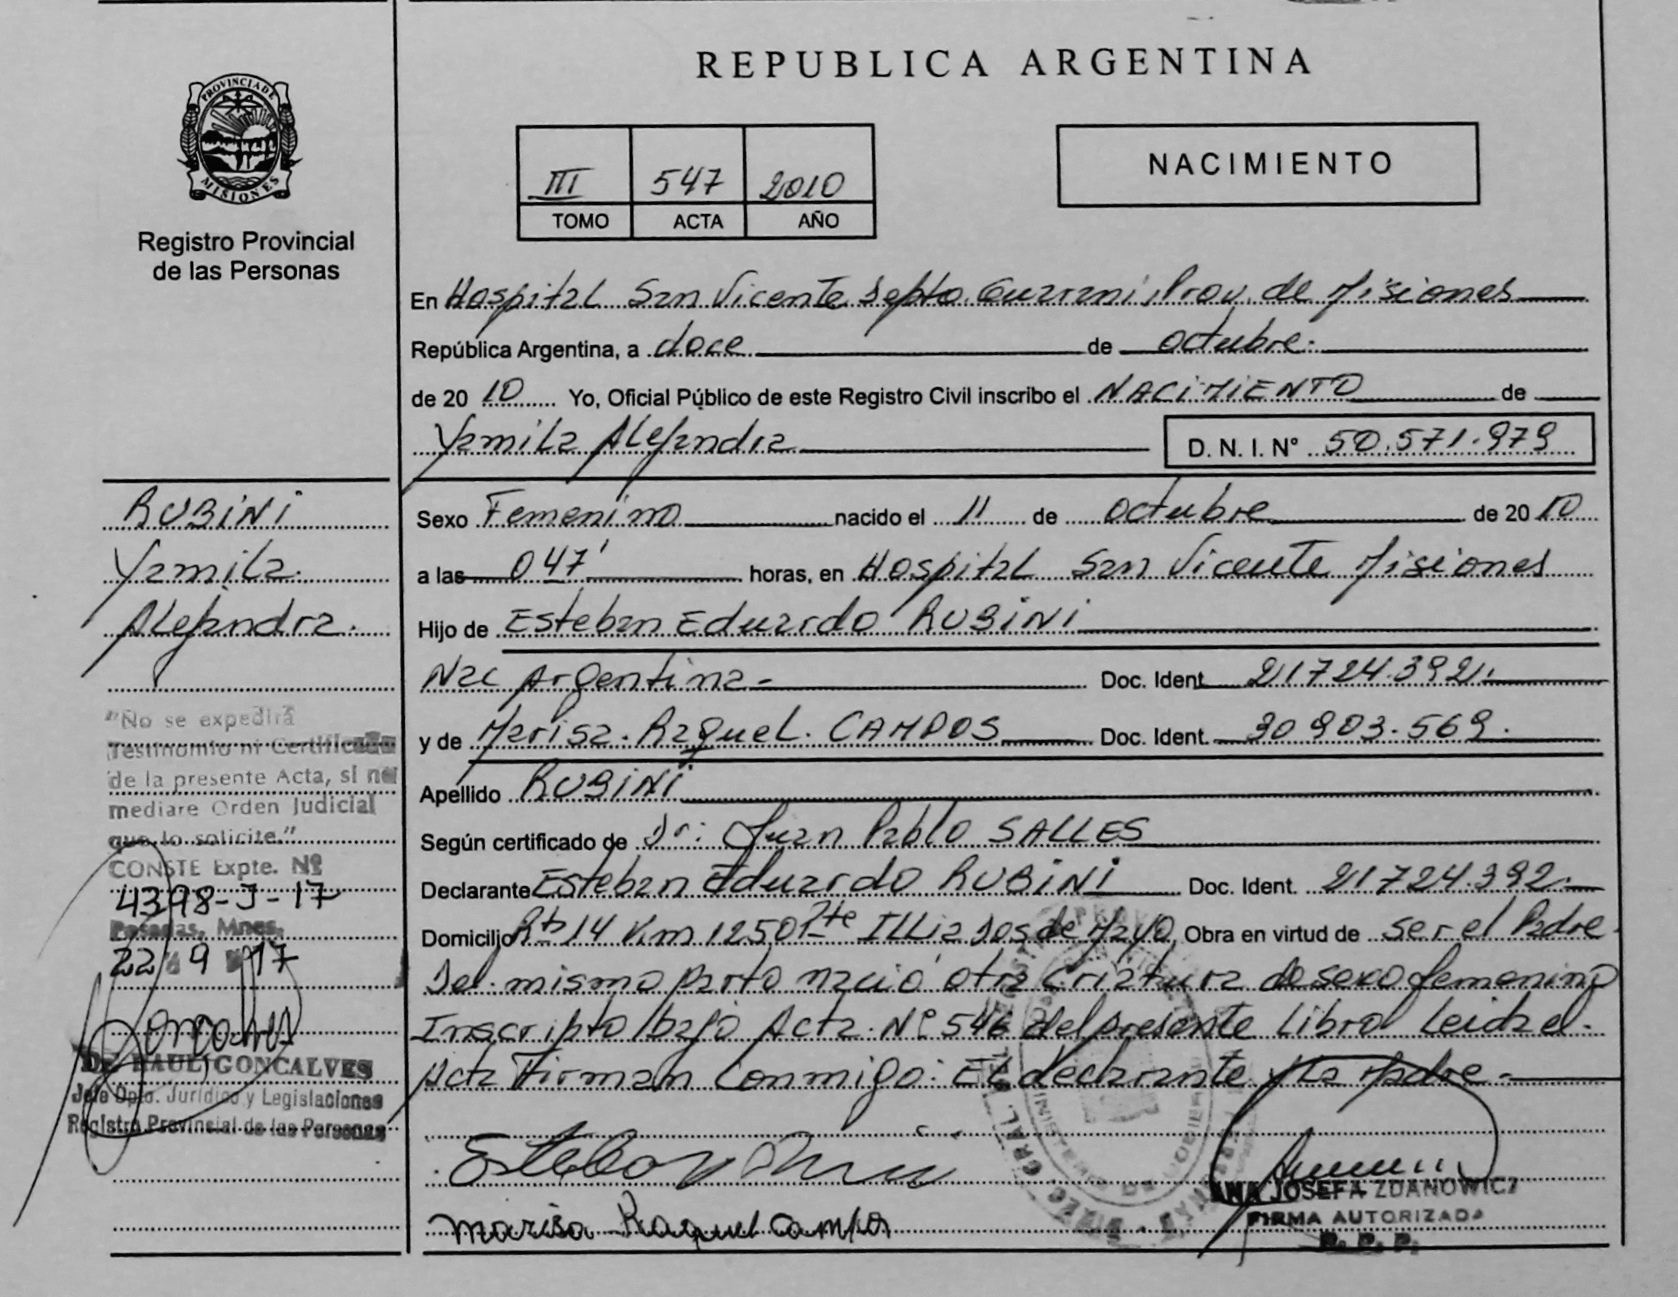 REPUBLICA ARGENTINA
PROVINCIA DE
MISIONES
Registro Provincial
de las Personas
III 547 2010
TOMO ACTA AÑO
NACIMIENTO
En Hospital San Vicente Depto. Guarani, Prov. de Misiones
República Argentina, a doce de octubre.
de 20 10 Yo, Oficial Público de este Registro Civil inscribo el NACIMIENTO de
Yamila Alejandra D. N. I. Nº 50.571.979
RUBINI
Yamila
Alejandra.
"No se expedirá
Testimonio ni Certificado
de la presente Acta, si no
mediare Orden Judicial
que lo solicite."
CONSTE Expte. Nº
4398-J-17
Posadas, Mnes.
22 9 17
RAUL GONCALVES
Jefe Dpto. Jurídico y Legislaciones
Registro Provincial de las Personas
Sexo Femenino nacido el 11 de octubre de 20 10
a las 047' horas, en Hospital San Vicente Misiones
Hijo de Esteban Eduardo RUBINI
Nac Argentina- Doc. Ident. 21724.392.
y de Marisa. Raquel. CAMPOS Doc. Ident. 30903.569.
Apellido RUBINI
Según certificado de Dr: Juan Pablo SALLES
Declarante Esteban Eduardo RUBINI Doc. Ident. 21724.392.
Domicilio Rta 14 Km 1250 Pte ILLia Dos de Mayo Obra en virtud de ser el Padre.
Del mismo parto nació otra criatura de sexo femenino
Inscripto bajo Acta. Nº 546 del presente Libro Leida el.
Acta Firman Conmigo: El declarante y la Madre.-
Marisa Raquel Campos
ANA JOSEFA ZDANOWICZ
FIRMA AUTORIZADA
R. P. P.